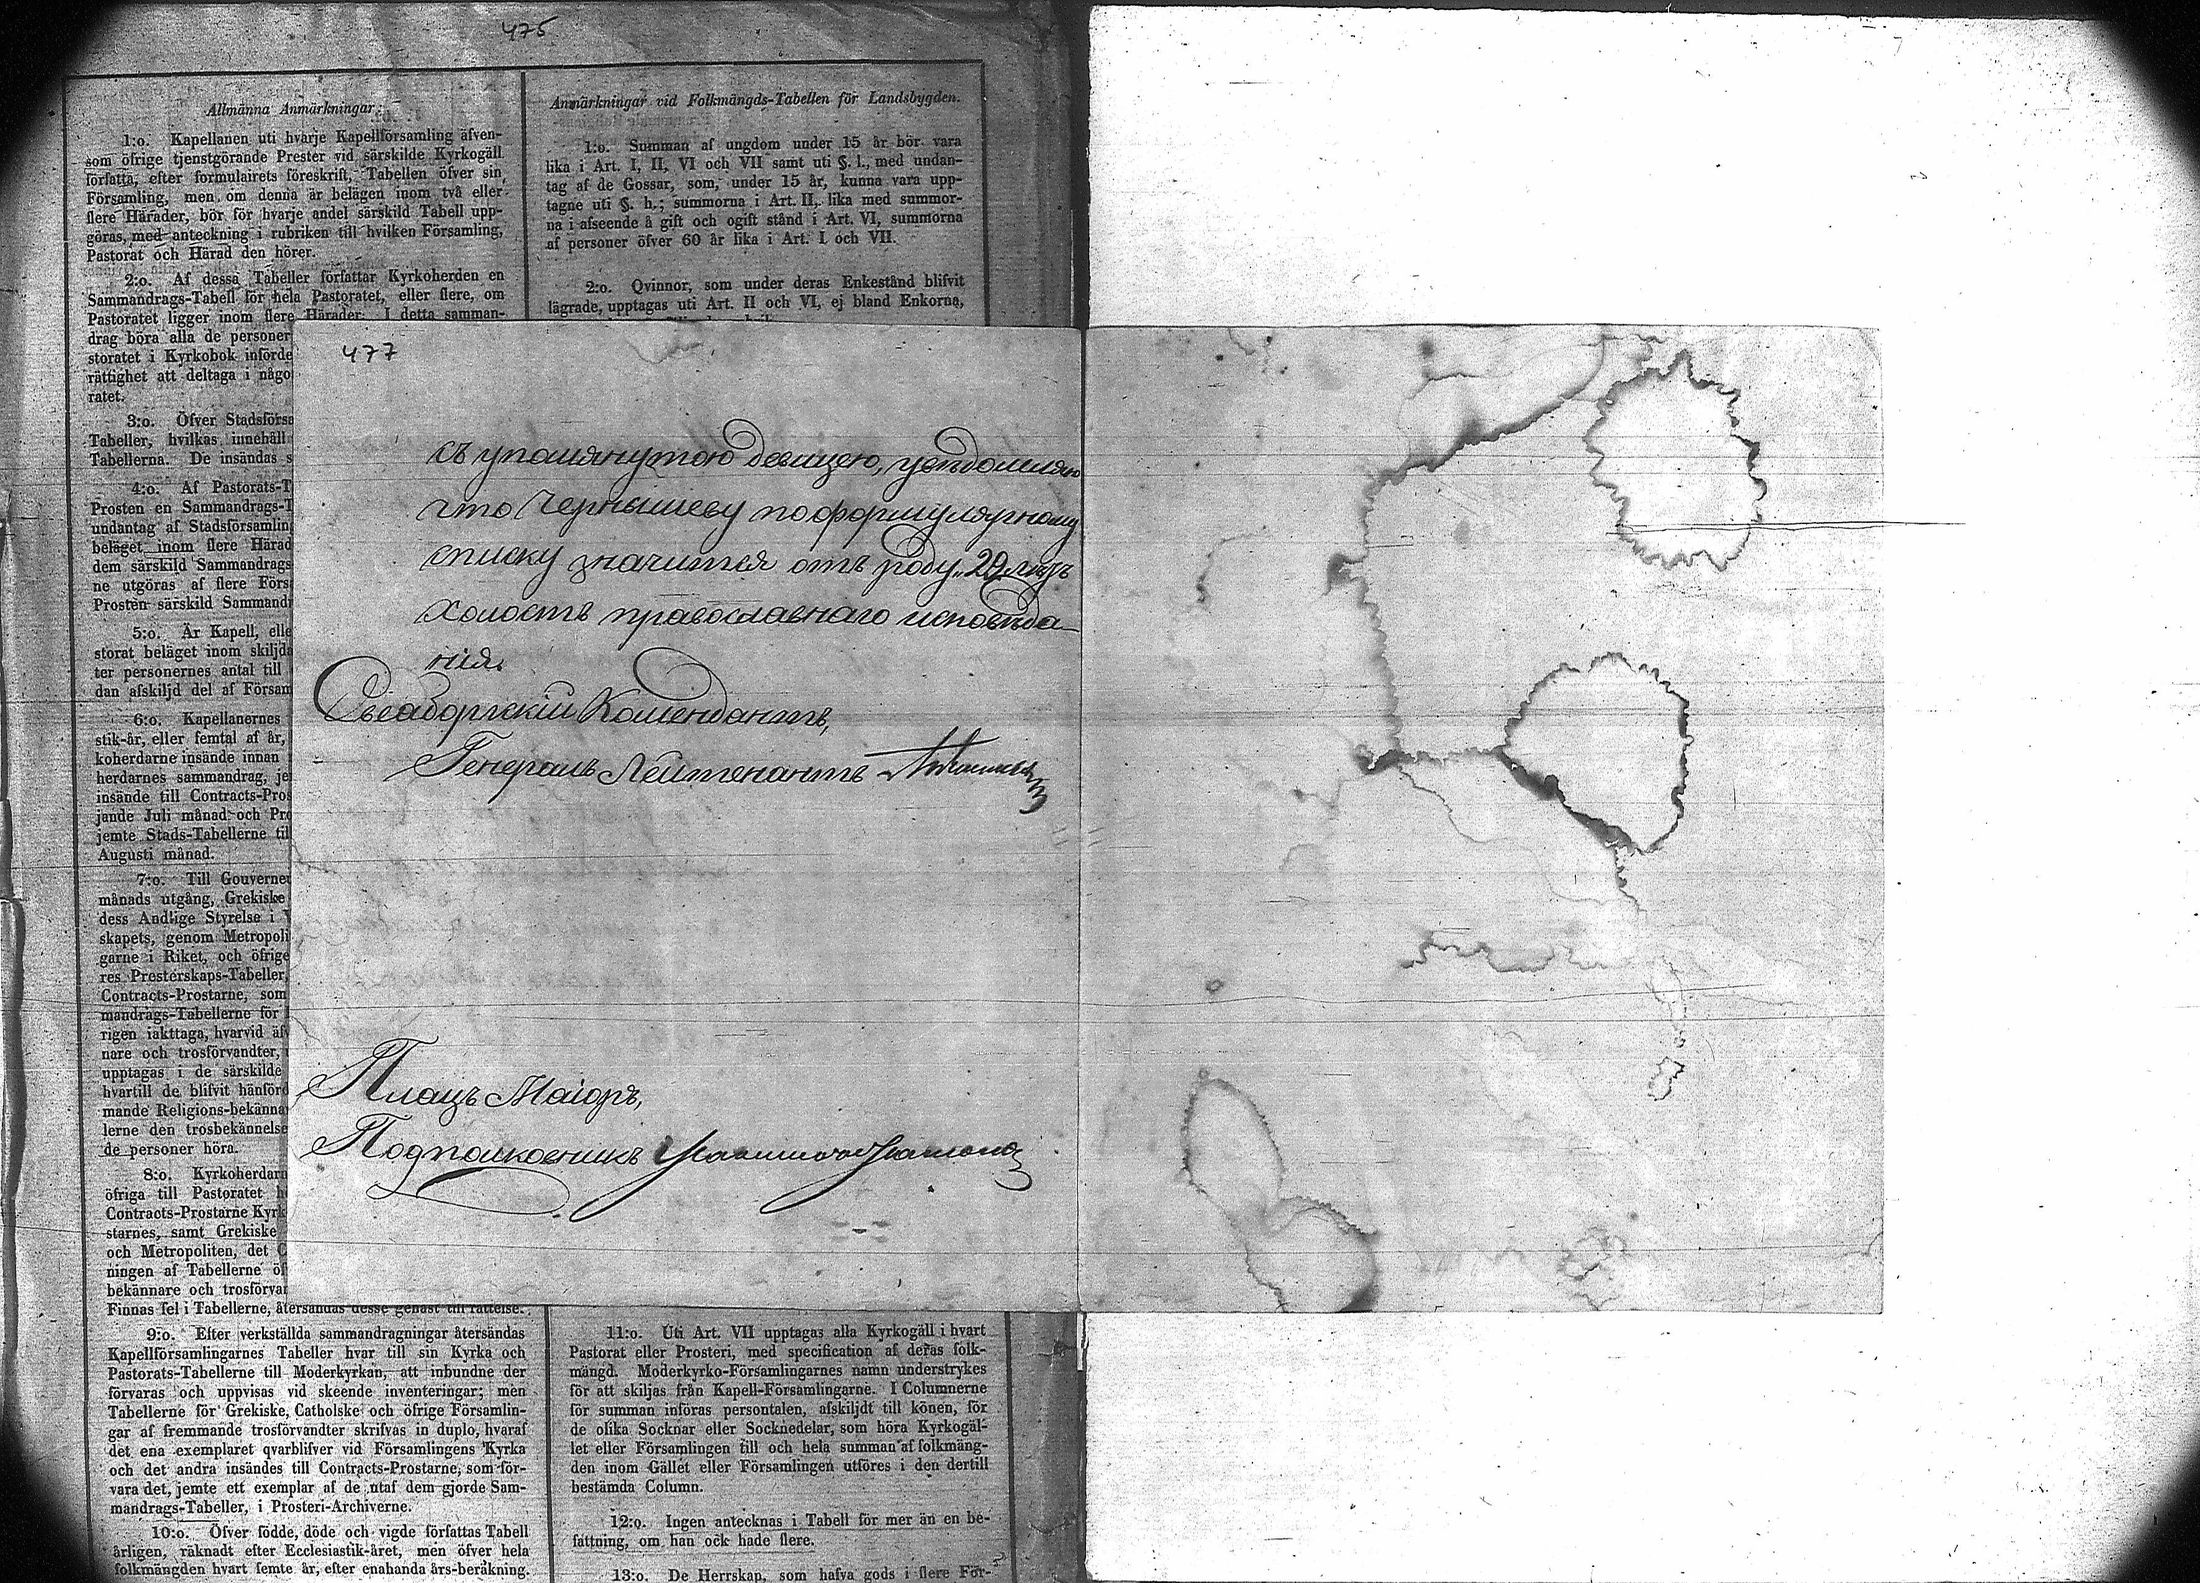 475
Allmänna Anmärkningar:
1:o. Kapellanen uti hvarje Kapellförsamling äfven-
som öfrige tjenstgörande Prester vid särskilde Kyrkogäll
författa, efter formulairets föreskrift, Tabellen öfver sin
Församling, men om denna är belägen inom två eller
flere Härader, bör för hvarje andel särskild Tabell upp-
göras, med anteckning i rubriken till hvilken Församling,
Pastorat och Härad den hörer.
2:o. Af dessa Tabeller författar Kyrkoherden en
Sammandrags-Tabell för hela Pastoratet, eller flere, om
Pastoratet ligger inom flere Härader. I detta samman-
drag böra alla de personer
storatet i Kyrkobok införde
rättighet att deltaga i någo
ratet.
3:o. Öfver Stadsförsa
Tabeller, hvilkas innehåll
Tabellerna. De insändas s
4:o. Af Pastorats-T
Prosten en Sammandrags-T
undantag af Stadsförsamlin
beläget inom flere Härad
dem särskild Sammandrags
ne utgöras af flere Förs
Prosten särskild Sammand
5:o. Är Kapell, elle
storat beläget inom skiljda
ter personernes antal till
dan afskiljd del af Försam
6:o. Kapellanernes
stik-år, eller femtal af år,
koherdarne insände innan
herdarnes sammandrag, je
insände till Contracts-Pros
jande Juli månad och Pro
jemte Stads-Tabellerne til
Augusti månad.
7:o. Till Gouverne
månads utgång, Grekiske
dess Andlige Styrelse i
skapets, genom Metropoli
garne i Riket, och öfrige
res Presterskaps-Tabeller,
Contracts-Prostarne, som
mandrags-Tabellerne för
rigen iakttaga, hvarvid äf
nare och trosförvandter,
upptagas i de särskilde
hvartill de blifvit hänförd
mande Religions-bekänna
lerne den trosbekännelse
de personer höra.
8:o. Kyrkoherdarn
öfriga till Pastoratet h
Contracts-Prostarne Kyrk
starnes, samt Grekiske
och Metropoliten, det C
ningen af Tabellerne öf
bekännare och trosförvar
Finnas fel i Tabellerne, återsändas desse genast till rättelse.
9:o. Efter verkställda sammandragningar återsändas
Kapellförsamlingarnes Tabeller hvar till sin Kyrka och
Pastorats-Tabellerne till Moderkyrkan, att inbundne der
förvaras och uppvisas vid skeende inventeringar; men
Tabellerne för Grekiske, Catholske och öfrige Församlin-
gar af fremmande trosförvandter skrifvas in duplo, hvaraf
det ena exemplaret qvarblifver vid Församlingens Kyrka
och det andra insändes till Contracts-Prostarne, som för-
vara det, jemte ett exemplar af de utaf dem gjorde Sam-
mandrags-Tabeller, i Prosteri-Archiverne.
10:o. Öfver födde, döde och vigde författas Tabell
årligen, räknadt efter Ecclesiastik-året, men öfver hela
folkmängden hvart femte år, efter enahanda års-beräkning.
Anmärkningar vid Folkmängds-Tabellen för Landsbygden.
1:o. Summan af ungdom under 15 år bör vara
lika i Art. I, II, VI och VII samt uti §. l., med undan-
tag af de Gossar, som, under 15 år, kunna vara upp-
tagne uti §. h.; summorna i Art. II, lika med summor-
na i afseende å gift och ogift stånd i Art. VI, summorna
af personer öfver 60 år lika i Art. I och VII.
2:o. Qvinnor, som under deras Enkestånd blifvit
lägrade, upptagas uti Art. II och VI, ej bland Enkorna,
11:o. Uti Art. VII upptagas alla Kyrkogäll i hvart
Pastorat eller Prosteri, med specification af deras folk-
mängd. Moderkyrko-Församlingarnes namn understrykes
för att skiljas från Kapell-Församlingarne. I Columnerne
för summan införas persontalen, afskiljdt till könen, för
de olika Socknar eller Socknedelar, som höra Kyrkogäl-
let eller Församlingen till och hela summan af folkmäng-
den inom Gället eller Församlingen utföres i den dertill
bestämda Column.
12:o. Ingen antecknas i Tabell för mer än en be-
fattning, om han ock hade flere.
13:o. De Herrskap, som hafva gods i flere För-
477
съ упомянутою девицею, уведомляю
что Чернышеву по формулярному
списку значится отъ роду 29 летъ
холостъ православнаго исповѣда-
нія.
Свеаборгскій Комендантъ,
Генералъ Лейтенантъ
Плацъ Маіоръ,
Подполковникъ